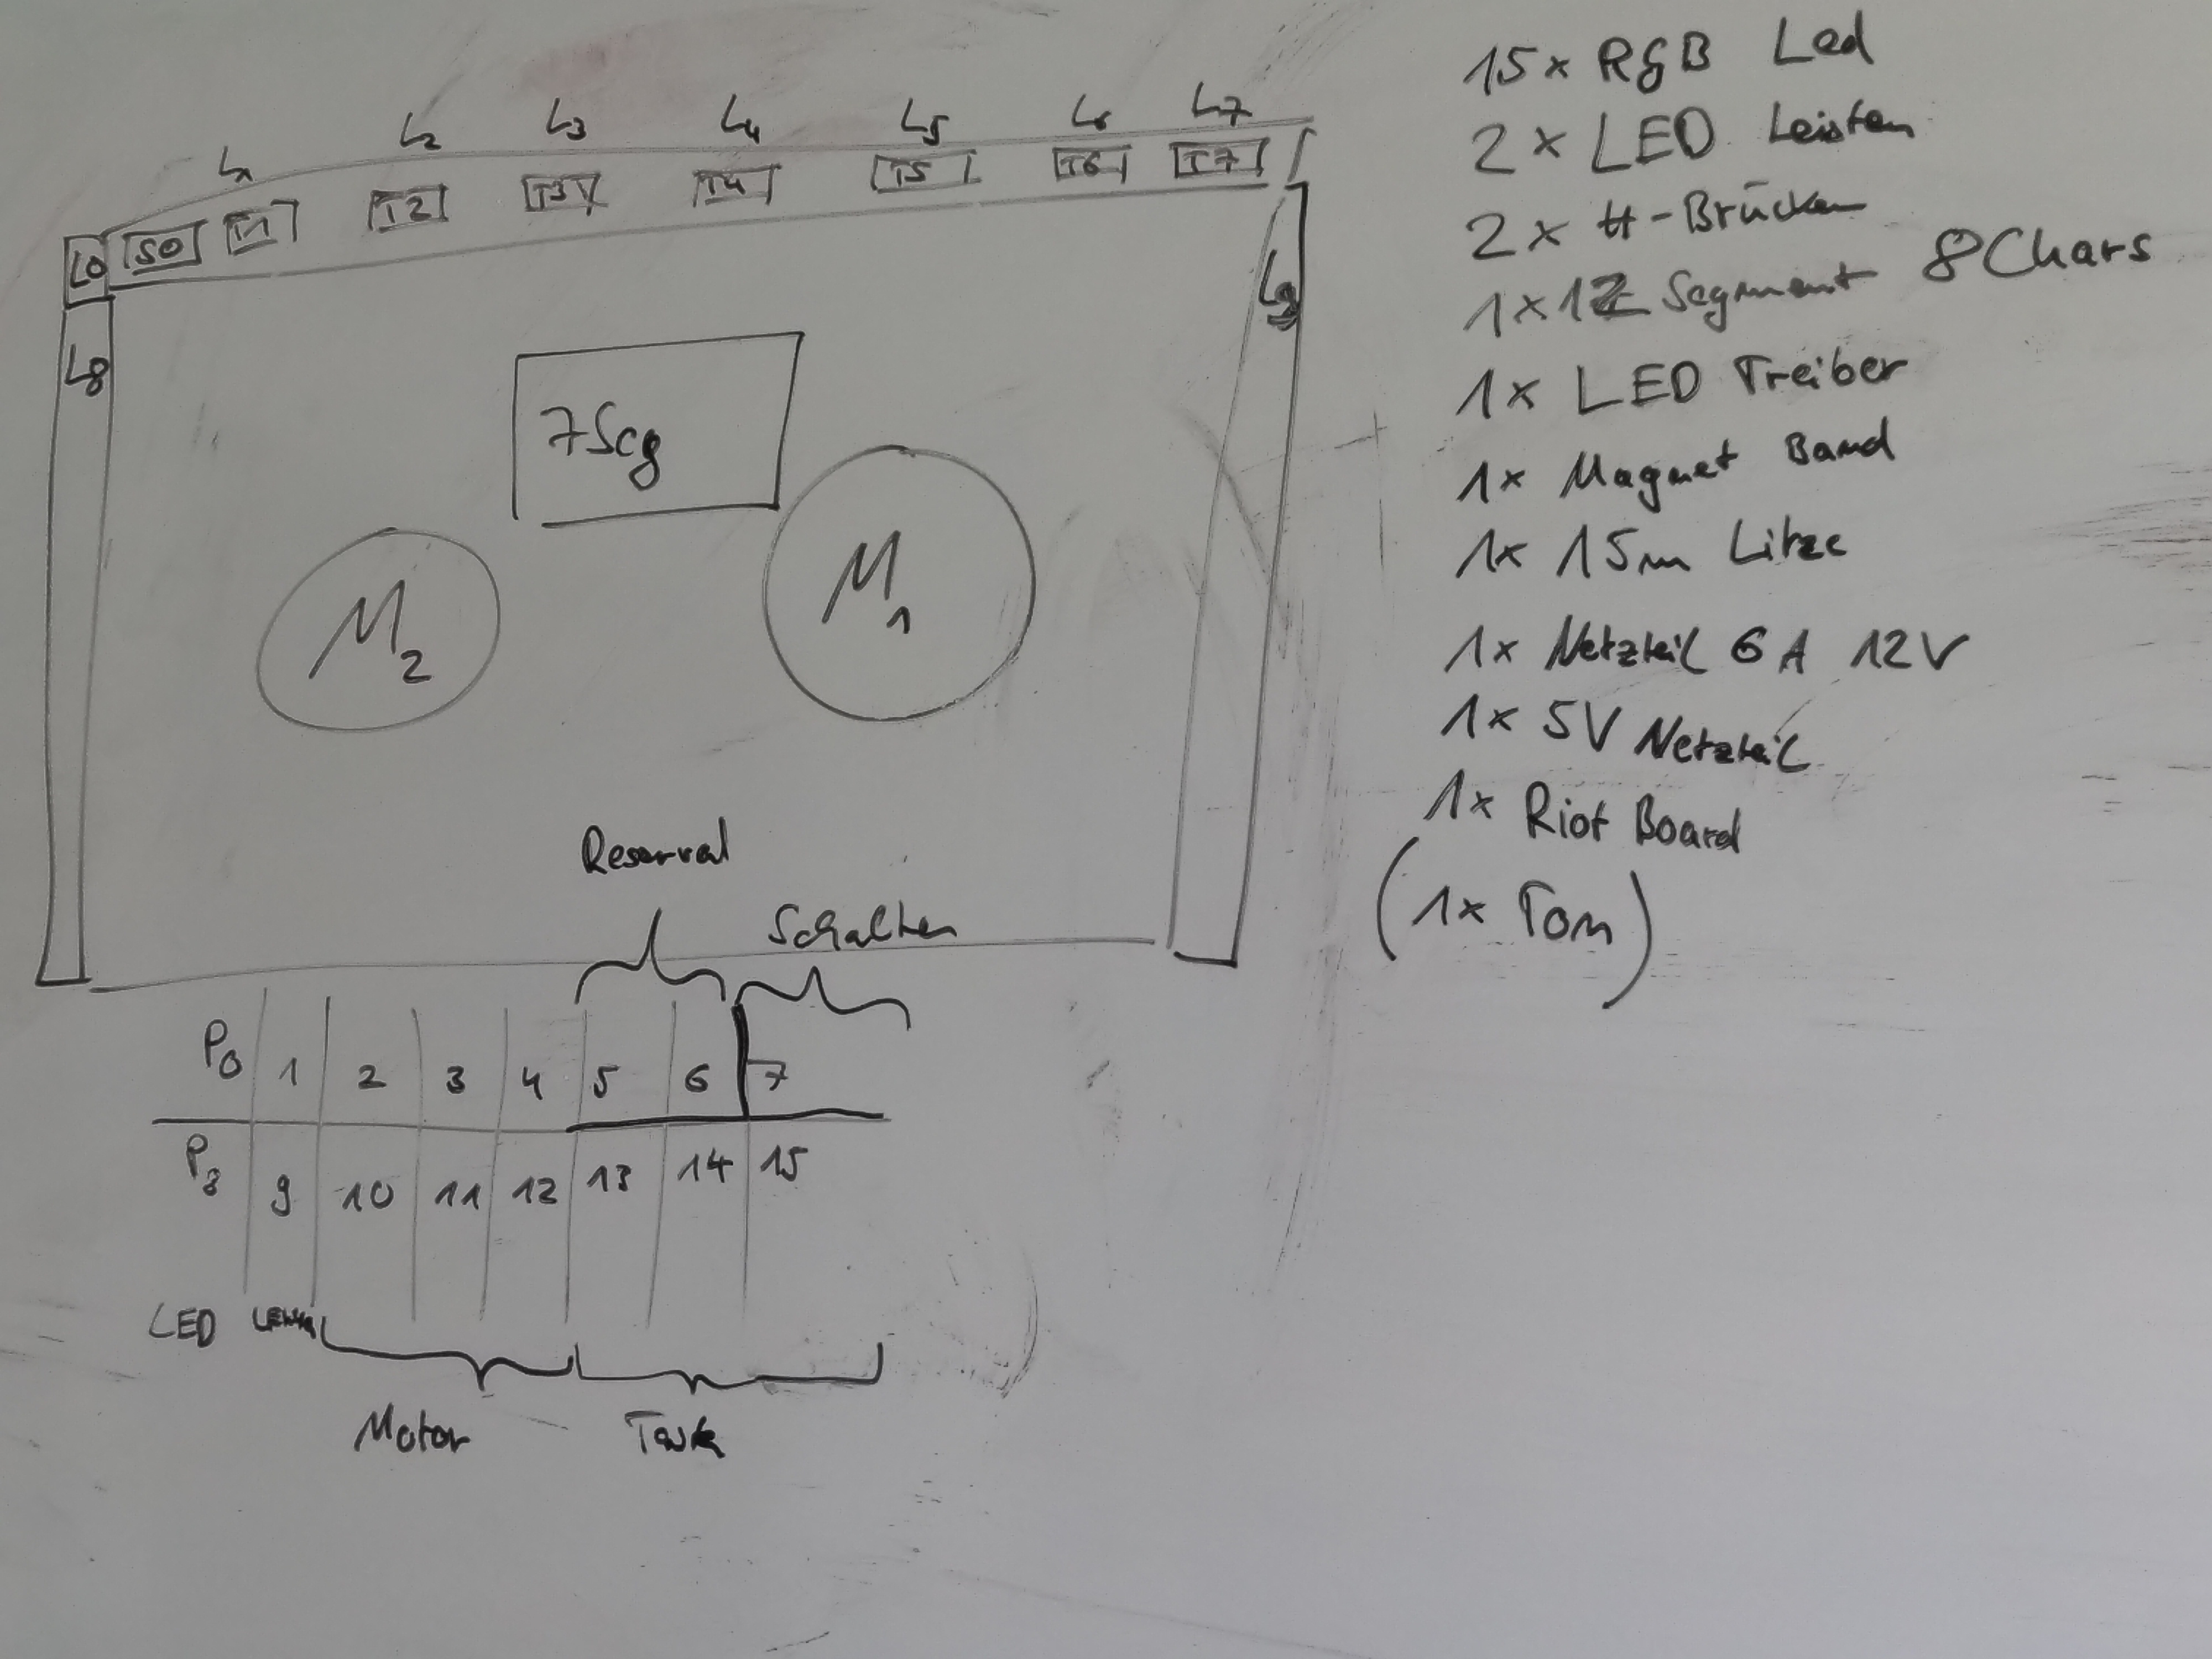 L1 L2 L3 L4 L5 L6 L7
L0 S0 T1 T2 T3 T4 T5 T6 T7
L8
L9
7Seg
M2
M1
Reserved
Schalten
P0 1 2 3 4 5 6 7
P8 9 10 11 12 13 14 15
LED
Motor
15x RGB Led
2x LED Leisten
2x H-Brücken
1x 12 Segment 8 Chars
1x LED Treiber
1x Magnet Band
1x 15m Litze
1x Netzteil 6A 12V
1x 5V Netzteil
1x Riot Board
(1x Tom)